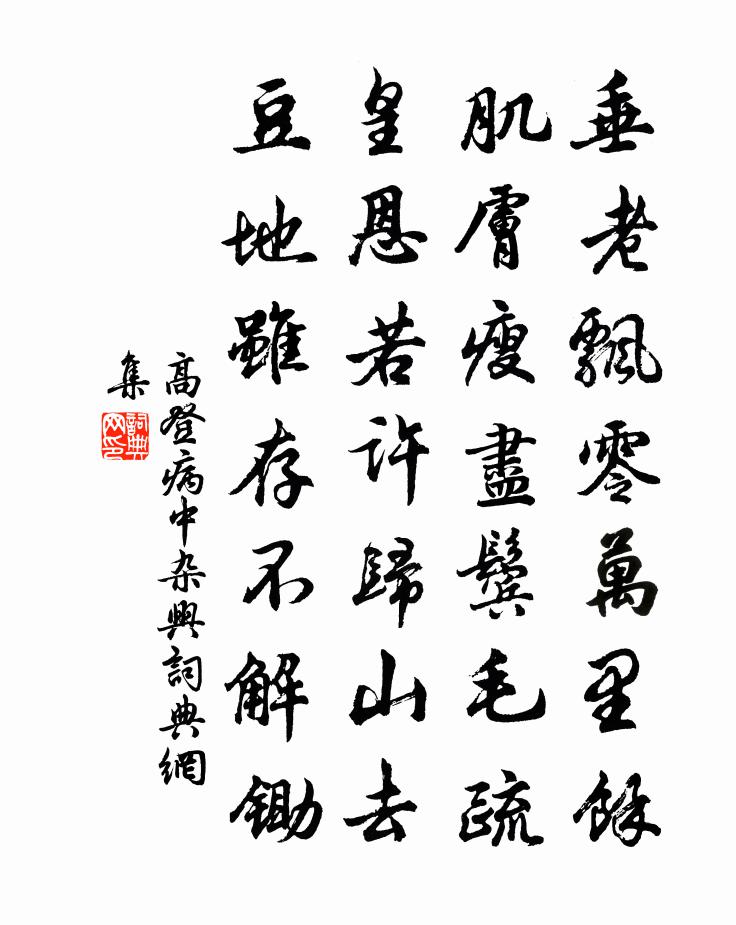 垂老飄零萬里餘
肌膚瘦盡鬢毛疏
皇恩若許歸山去
豆地雖存不解鋤
高登病中杂興詞典網
集
詞典
网印